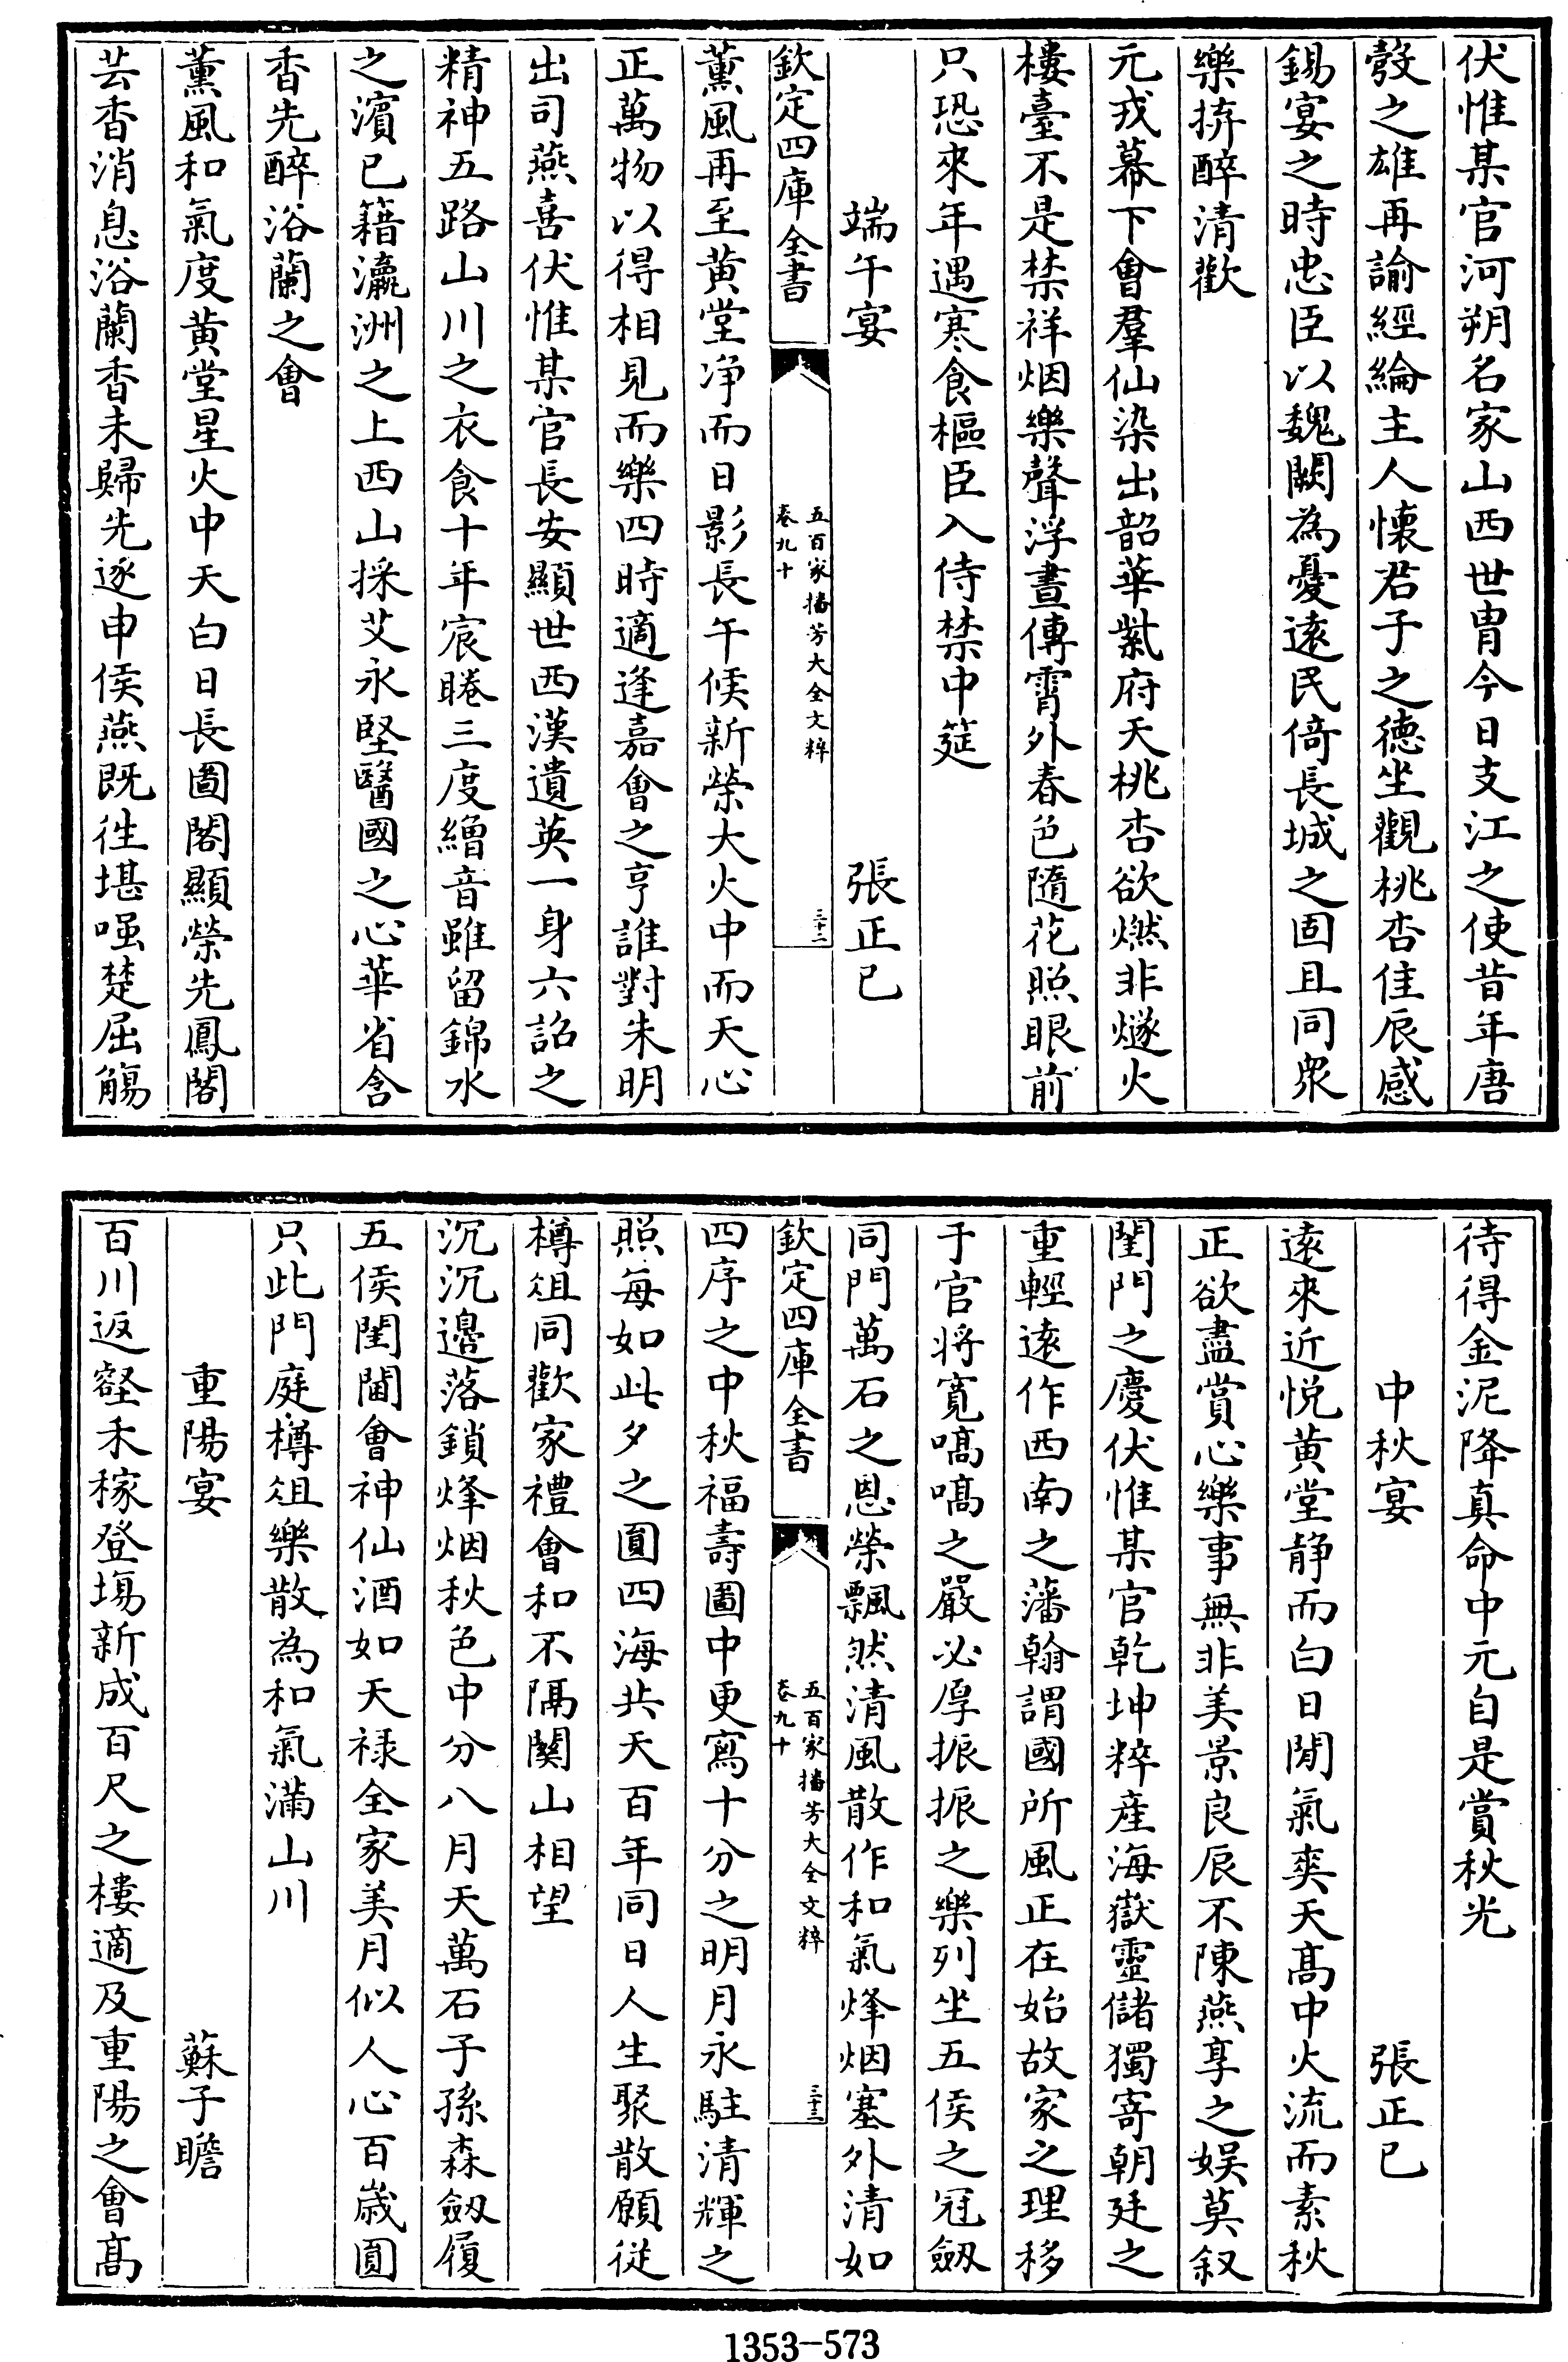 伏惟某官河朔名家山西世胄今日支江之使昔年唐
彀之雄再諭經綸主人懷君子之德坐觀桃杏佳辰感
錫宴之時忠臣以魏闕為憂遠民倚長城之固且同衆
樂拚醉清歡
元戎幕下會羣仙染出韶華紫府天桃杏欲燃非燧火
樓臺不是禁祥烟樂聲浮晝傳霄外春色隨花照眼前
只恐來年遇寒食樞臣入侍禁中筵
端午宴 張正己
欽定四庫全書
五百家播芳大全文粹
卷九十
三十二
薰風再至黄堂净而日影長午候新榮大火中而天心
正萬物以得相見而樂四時適逢嘉會之亨誰對朱明
出司燕喜伏惟某官長安顯世西漢遺英一身六詔之
精神五路山川之衣食十年宸睠三度繒音雖留錦水
之濱已籍瀛洲之上西山採艾永堅醫國之心華省含
香先醉浴蘭之會
薰風和氣度黄堂星火中天白日長圖閣顯榮先鳳閣
芸香消息浴蘭香未歸先逐申侯燕既徃堪嗤楚屈觴
待得金泥降真命中元自是賞秋光
中秋宴 張正己
遠來近悦黄堂静而白日閒氣爽天髙中火流而素秋
正欲盡賞心樂事無非美景良辰不陳燕享之娱莫叙
閨門之慶伏惟某官乾坤粹産海嶽靈儲獨寄朝廷之
重輕遠作西南之藩翰謂國所風正在始故家之理移
于官将寛嗃嗃之嚴必厚振振之樂列坐五侯之冠劔
同門萬石之恩榮飄然清風散作和氣烽烟塞外清如
欽定四庫全書
五百家播芳大全文粹
卷九十
三十三
四序之中秋福壽圖中更寫十分之明月永駐清輝之
照每如此夕之圓四海共天百年同日人生聚散願従
樽俎同歡家禮會和不隔關山相望
沉沉邊落鎖烽烟秋色中分八月天萬石子孫森劔履
五侯閨閫會神仙酒如天禄全家美月似人心百歳圓
只此門庭樽俎樂散為和氣滿山川
重陽宴 蘇子瞻
百川返壑禾稼登塲新成百尺之樓適及重陽之會髙
1353-573